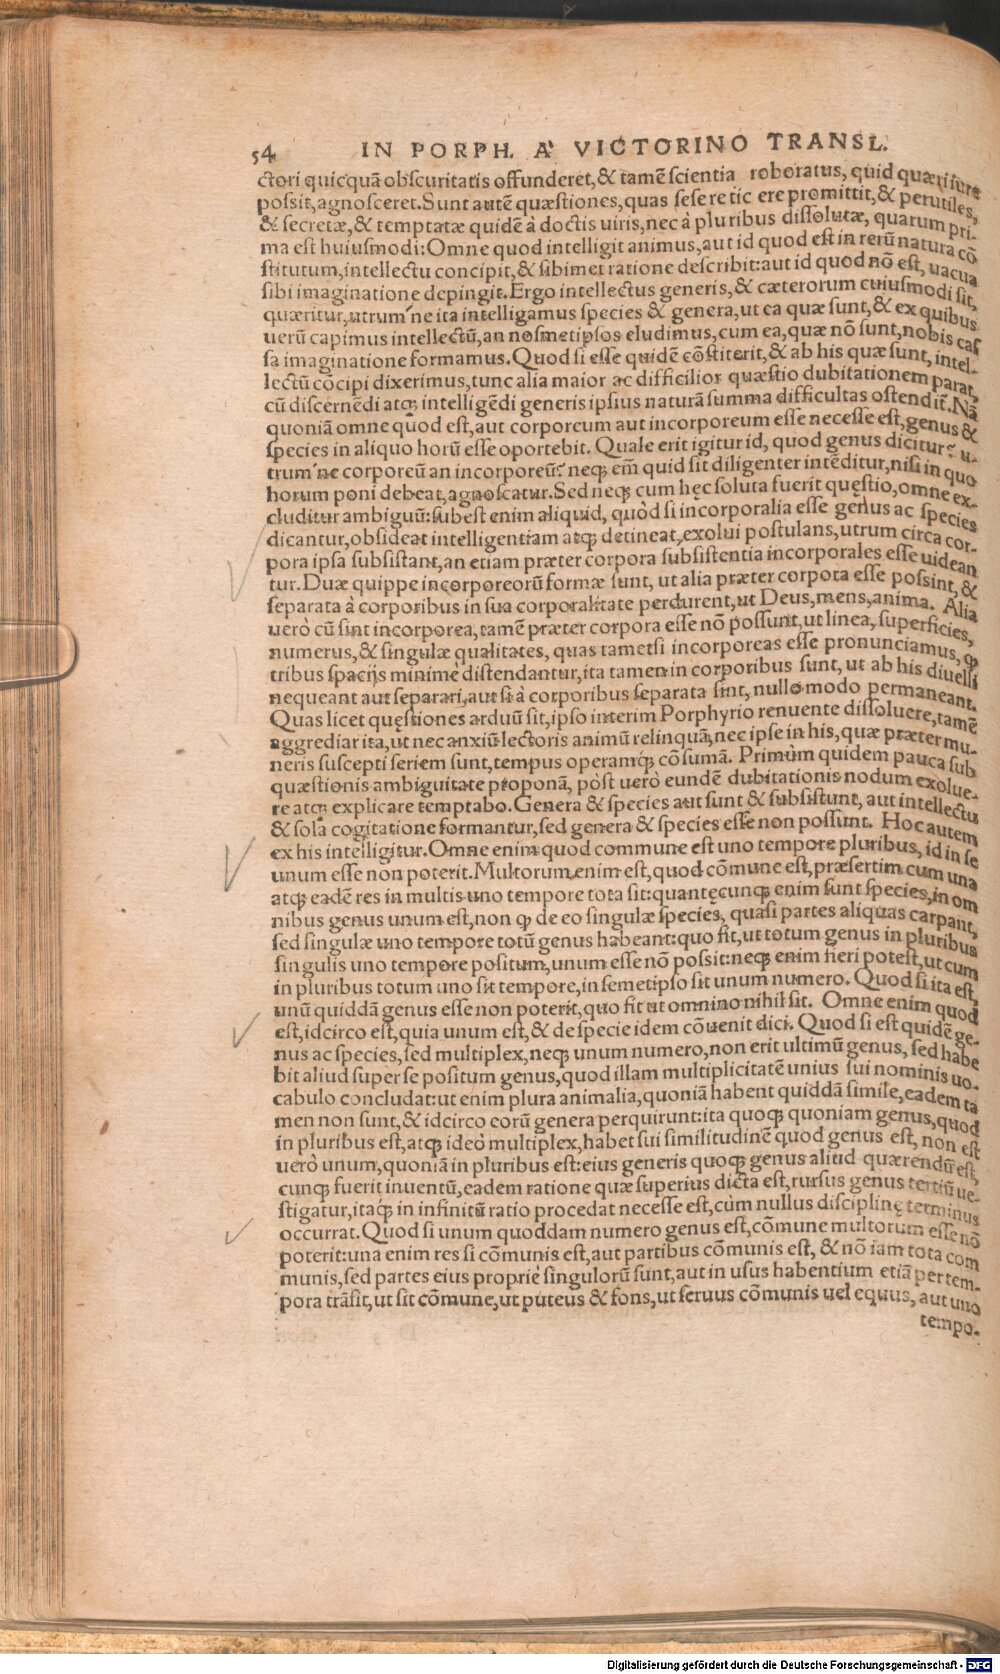 54 IN PORPH. A' VICTORINO TRANSL.
ctori quicquā obscuritatis offunderet, & tamē scientia roboratus, quid quæri iure
possit, agnosceret. Sunt autē quæstiones, quas sese reticere promittit, & perutiles,
& secretæ, & temptatæ quidē à doctis uiris, nec à pluribus dissolutæ, quarum pri-
ma est huiusmodi: Omne quod intelligit animus, aut id quod est in rerū natura cō
stitutum, intellectu concipit, & sibimet ratione describit: aut id quod nō est, uacua
sibi imaginatione depingit. Ergo intellectus generis, & cæterorum cuiusmodi sit,
quæritur, utrum'ne ita intelligamus species & genera, ut ea quæ sunt, & ex quibus
uerū capimus intellectū, an nosmetipsos eludimus, cum ea, quæ nō sunt, nobis cas
sa imaginatione formamus. Quod si esse quidē cōstiterit, & ab his quæ sunt, intel-
lectū cōcipi dixerimus, tunc alia maior ac difficilior quæstio dubitationem parat,
cū discernēdi atq; intelligēdi generis ipsius naturā summa difficultas ostendit̄. Nā
quoniā omne quod est, aut corporeum aut incorporeum esse necesse est, genus &
species in aliquo horū esse oportebit. Quale erit igitur id, quod genus dicitur? u-
trum'ne corporeū an incorporeū? neq; em̄ quid sit diligenter intēditur, nisi in quo
horum poni debeat, agnoscatur. Sed neq; cum hęc soluta fuerit quęstio, omne ex-
cluditur ambiguū: subest enim aliquid, quòd si incorporalia esse genus ac species
dicantur, obsideat intelligentiam atq; detineat, exolui postulans, utrum circa cor-
pora ipsa subsistant, an etiam præter corpora subsistentia incorporales esse uidean
tur. Duæ quippe incorporeorū formæ sunt, ut alia præter corpora esse possint, &
separata à corporibus in sua corporalitate perdurent, ut Deus, mens, anima. Alia
uerò cū sint incorporea, tamē præter corpora esse nō possunt, ut linea, superficies,
numerus, & singulæ qualitates, quas tametsi incorporeas esse pronunciamus, ꝙ
tribus spacijs minimè distendantur, ita tamen in corporibus sunt, ut ab his diuelli
nequeant aut separari, aut si à corporibus separata sint, nullo modo permaneant.
Quas licet quęstiones arduū sit, ipso interim Porphyrio renuente dissoluere, tamē
aggrediar ita, ut nec anxiū lectoris animū relinquā, nec ipse in his, quæ præter mu-
neris suscepti seriem sunt, tempus operamq; cōsumā. Primùm quidem pauca sub
quæstionis ambiguitate proponā, pòst uerò eundē dubitationis nodum exolue-
re atq; explicare temptabo. Genera & species aut sunt & subsistunt, aut intellectu
& sola cogitatione formantur, sed genera & species esse non possunt. Hoc autem
ex his intelligitur. Omne enim quod commune est uno tempore pluribus, id in se
unum esse non poterit. Multorum enim est, quod cōmune est, præsertim cum una
atq; eadē res in multis uno tempore tota sit: quantęcunq; enim sunt species, in om
nibus genus unum est, non ꝙ de eo singulæ species, quasi partes aliquas carpant,
sed singulæ uno tempore totū genus habeant: quo fit, ut totum genus in pluribus
singulis uno tempore positum, unum esse nō possit: neq; enim fieri potest, ut cum
in pluribus totum uno sit tempore, in semetipso sit unum numero. Quod si ita est,
unū quiddā genus esse non poterit, quo fit ut omnino nihil sit. Omne enim quod
est, idcirco est, quia unum est, & de specie idem cōuenit dici. Quod si est quidē ge-
nus ac species, sed multiplex, neq; unum numero, non erit ultimū genus, sed habe
bit aliud super se positum genus, quod illam multiplicitatē unius sui nominis uo-
cabulo concludat: ut enim plura animalia, quoniā habent quiddā simile, eadem ta
men non sunt, & idcirco eorū genera perquirunt: ita quoq; quoniam genus, quod
in pluribus est, atq; ideò multiplex, habet sui similitudinē quod genus est, non est
uerò unum, quoniā in pluribus est: eius generis quoq; genus aliud quærendū est,
cunq; fuerit inuentū, eadem ratione quæ superius dicta est, rursus genus tertiū ue-
stigatur, itaq; in infinitū ratio procedat necesse est, cùm nullus disciplinę terminus
occurrat. Quod si unum quoddam numero genus est, cōmune multorum esse nō
poterit: una enim res si cōmunis est, aut partibus cōmunis est, & nō iam tota com
munis, sed partes eius propriè singulorū sunt, aut in usus habentium etiā per tem-
pora trāsit, ut sit cōmune, ut puteus & fons, ut seruus cōmunis uel equus, aut uno
tempo-
Digitalisierung gefördert durch die Deutsche Forschungsgemeinschaft - DFG